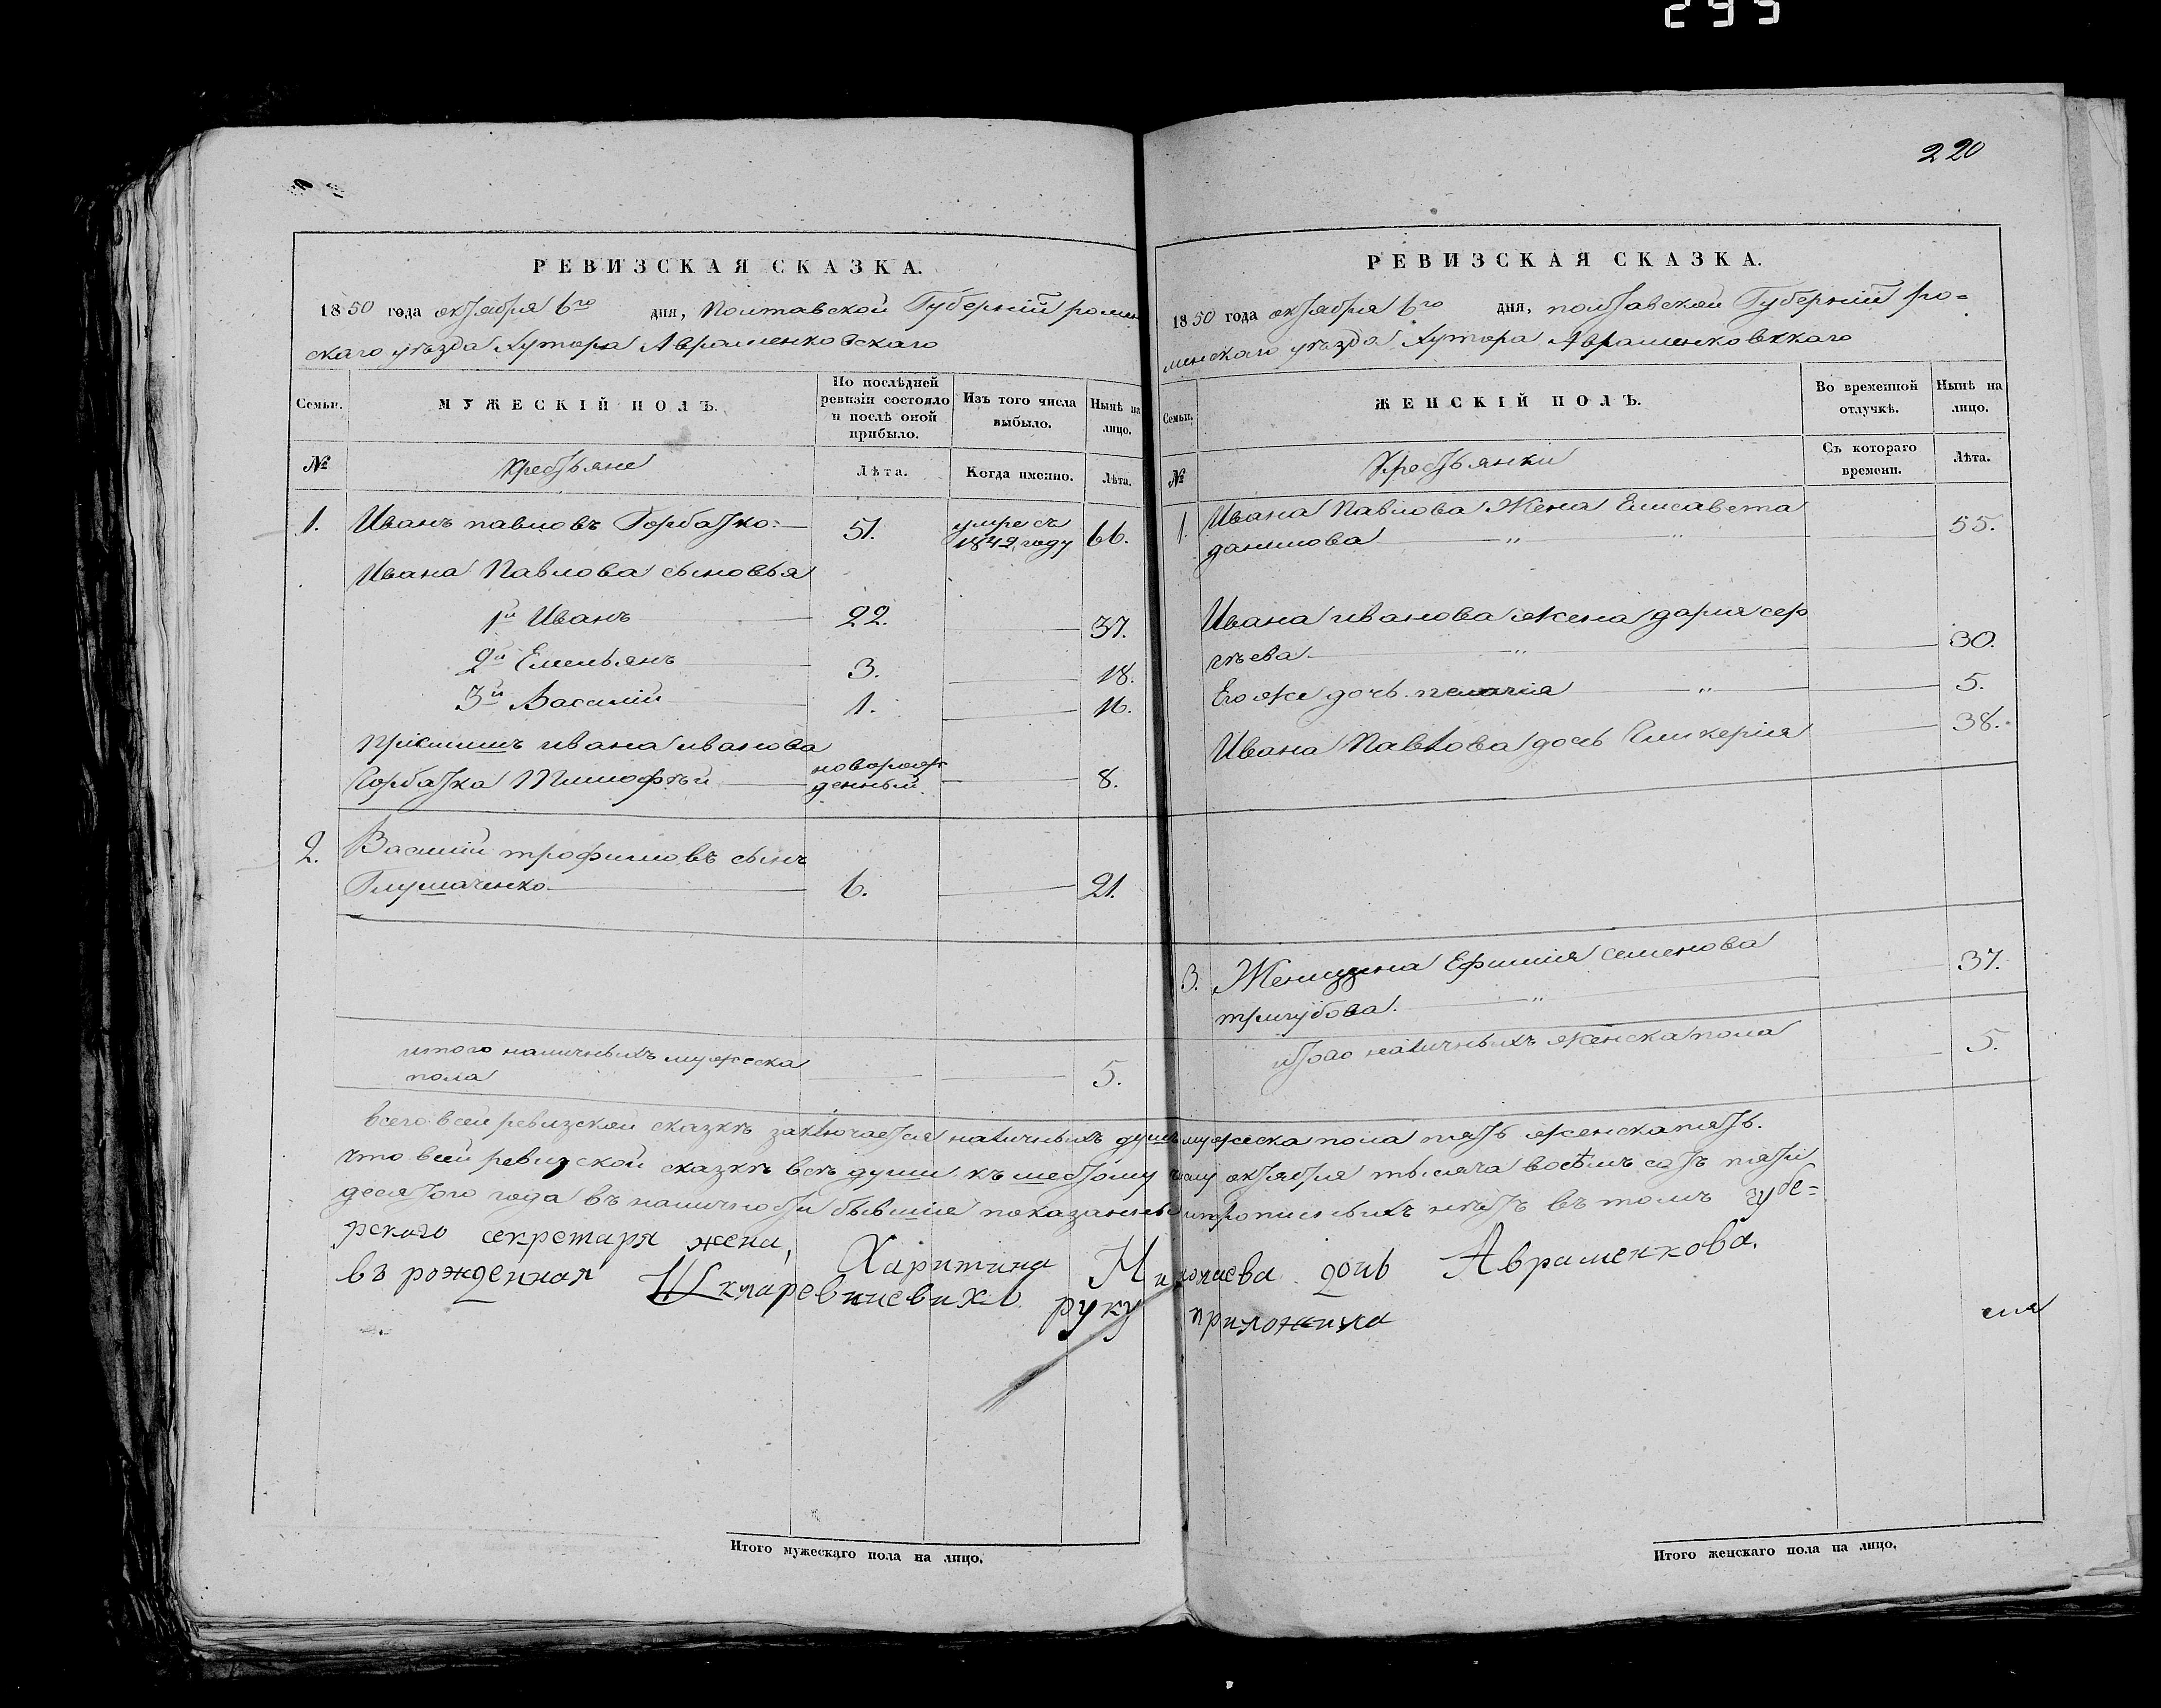 295
220
РЕВИЗСКАЯ СКАЗКА.
1850 года октября 6го дня, Полтавской Губернiй ромен
скаго уѣзда Хутора Авраменковскаго
Семьи.
МУЖЕСКІЙ ПОЛЪ.
По послѣдней
ревизіи состояло
и послѣ оной
прибыло.
Изъ того числа
выбыло.
Нынѣ на
лицо.
№
Крестьяне
Лѣта.
Когда именно.
Лѣта.
1. Иванъ павловъ Горбатко 51. умре съ 1842 году 66.
Ивана Павлова сыновья
1й Иванъ 22. 37.
2й Емельянъ 3. 18.
3й Василий 1. 16.
ивана иванова
Горбатка Тимофѣй новорож
денный 8.
2. Василий трофимовъ сынъ
Глушаченко 6. 21.
итого наличныхъ мужеска
пола 5.
РЕВИЗСКАЯ СКАЗКА.
1850 года октября 6го дня, полтавской Губернiй ро=
менскаго уѣзда Хутора Авраменковскаго
Семьи.
ЖЕНСКІЙ ПОЛЪ.
Во временной
отлучкѣ.
Нынѣ на
лицо.
№
Крестьянки
Съ котораго
времени.
Лѣта.
1. Ивана Павлова Жена Елисавета
данилова 55.
Ивана иванова жена дария сер
гѣева 30.
Его же дочь пелагия 5.
Ивана Павлова дочь Гликерия 38.
3. Женщина Ефимия семенова 37.
тригубова.
итого наличныхъ женска пола 5.
всего всей ревизской сказкѣ заключается наличныхъ душъ мужеска пола пять женска пять.
что всей ревизской сказкѣ всѣ души къ шестому числу октября тысяча восѣмъ сотъ пяти
десятого года въ наличности бывшие показанны и прописныхъ нѣтъ въ томъ губе=
рского секретаря жена, Харитина Николаева дочь Авраменкова.
в рожденная Шкляревичевых руку приложила